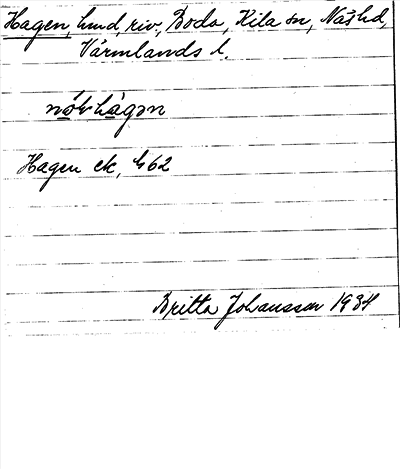 Hagen, hmd, riv., Boda, Kila sn, Näs hd,
Värmlands l.
Hagen ek, 462
Britta Johansson 1934